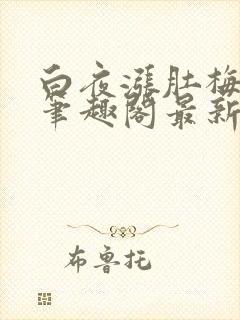 白夜涨肚梅
笔趣阁最新
布鲁托